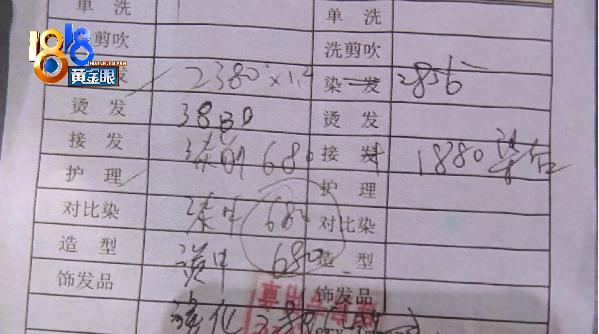 单 洗 单 洗
1818 黄金眼 洗剪吹
发 2380×1.2 染 发 2856
烫 发 3880 烫 发
接 发 染前 680 接 发 1880
护 理 护 理
对比染 染中 680 对比染
造 型 烫中 680 造 型
饰发品 饰发品
强化